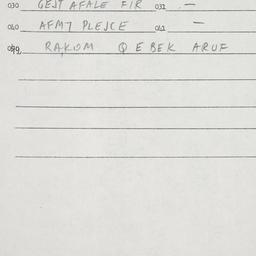 030 GEST AFALE FIR 032 —
060 AFMT PLEJCE 062 —
RAKOM Q E BEK ARUF